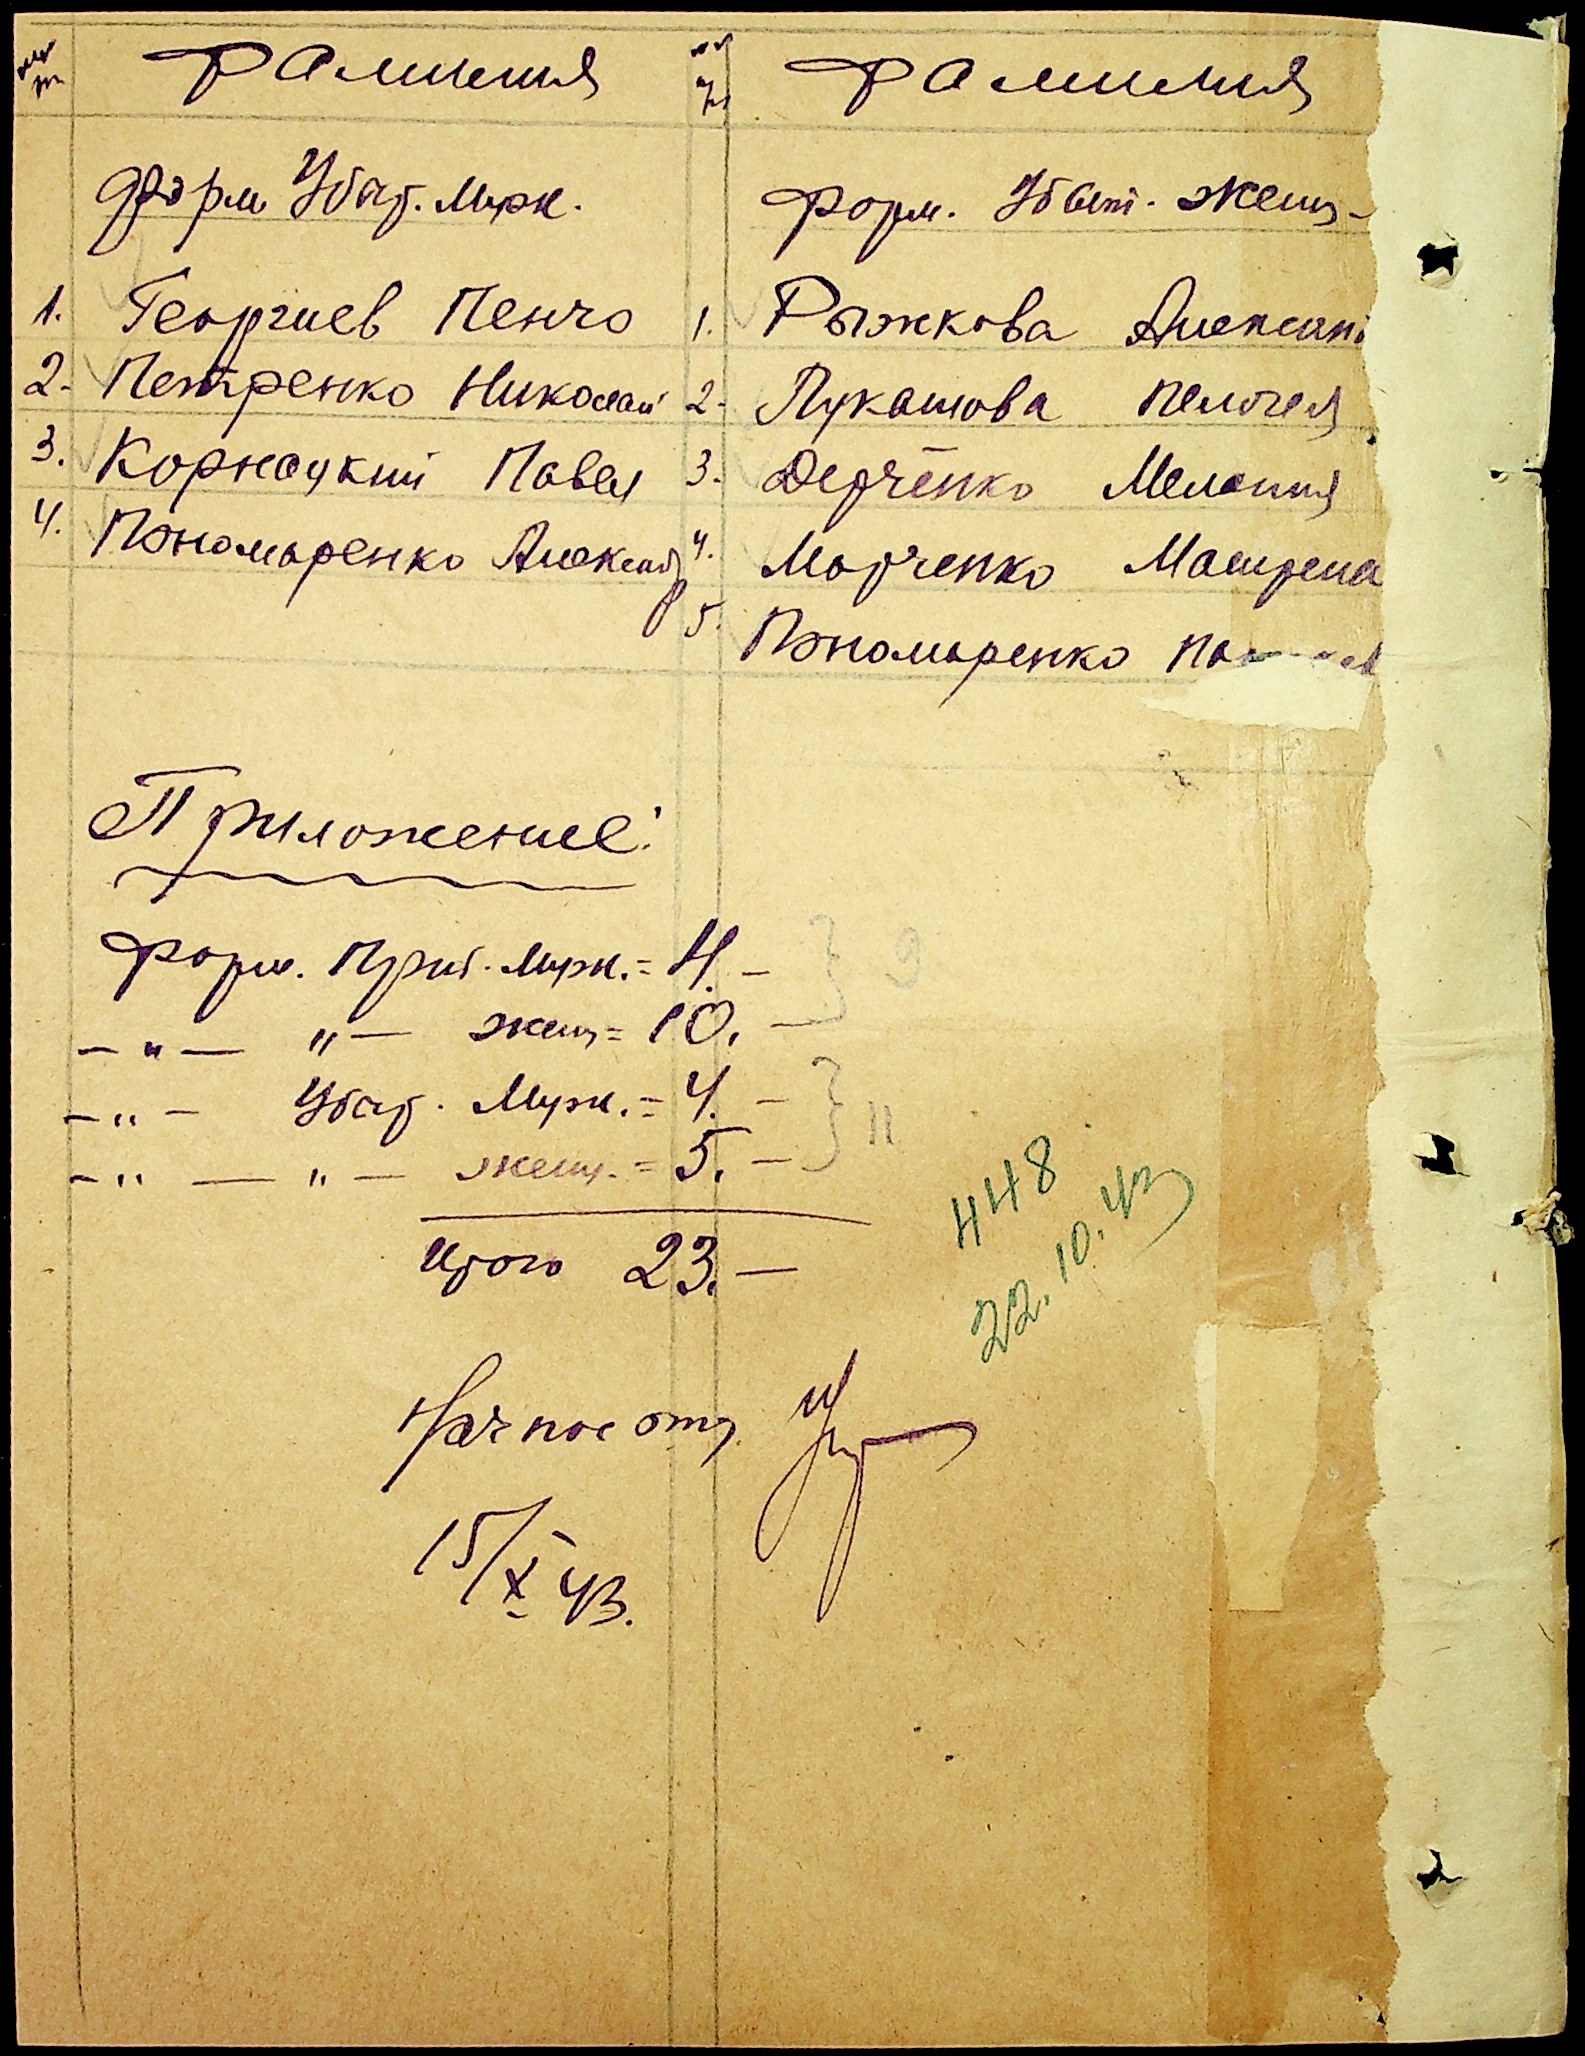 Фамилия
Фамилия
Форм Убыт. Муж.
Форм. Убыт. Жен
1. Георгиев Пенчо
2. Петренко Николай
3. Корнацкий Павел
4. Пономаренко Александр
1. Рыжкова Александ
2. Лукашова Пелогея
3. Дерченко Мелания
4. Марченко Матрена
5. Пономаренко
Приложение:
Форм. Приб. Муж. = 4. —
— " — " — жен = 10. —
— " — Убыт. Муж. = 4. —
— " — " — жен. = 5. —
Итого 23. —
9
11
448
22.10.43
Нач пас отд
15/X 43.